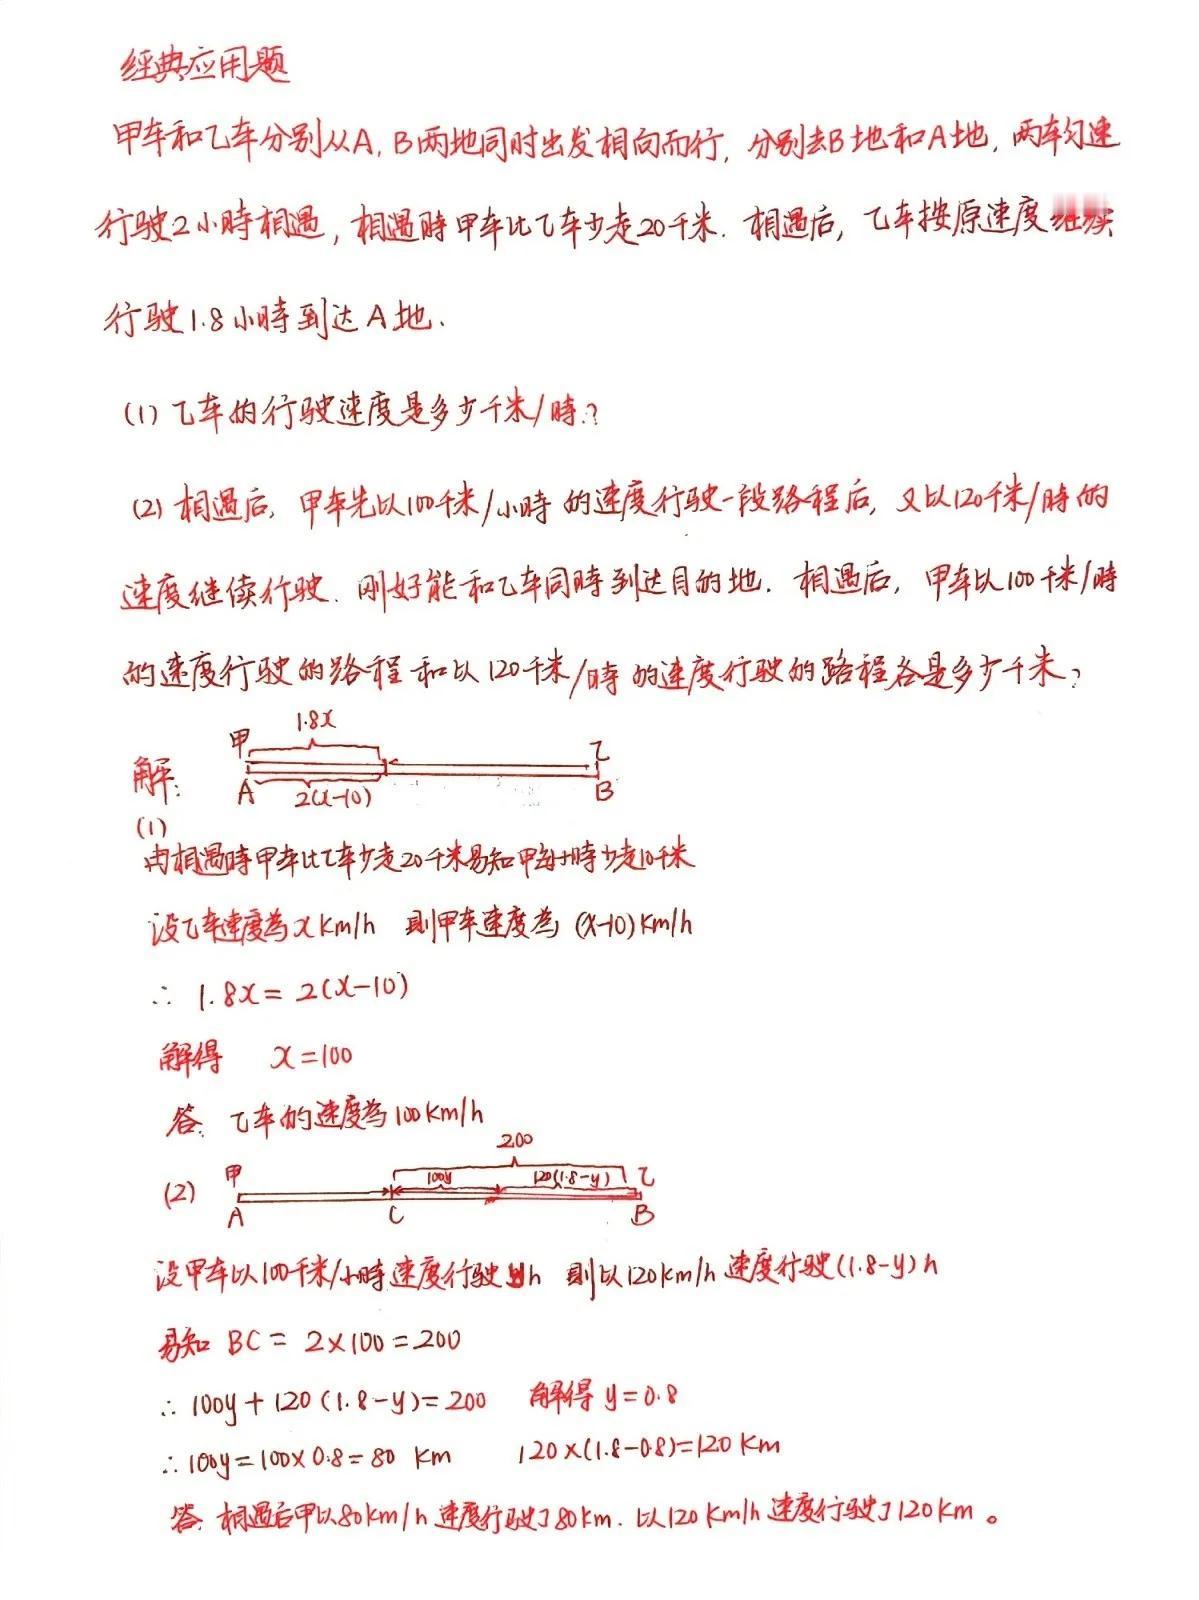 經典应用题
甲车和乙车分别从A,B两地同时出发相向而行,分别去B地和A地,两车匀速
行驶2小時相遇,相遇時甲车比乙车少走20千米.相遇后,乙车按原速度继续
行驶1.8小時到达A地.
(1)乙车的行驶速度是多少千米/時?
(2)相遇后,甲车先以100千米/小時的速度行驶一段路程后,又以120千米/時的
速度继续行驶.刚好能和乙车同時到达目的地.相遇后,甲车以100千米/時
的速度行驶的路程和以120千米/時的速度行驶的路程各是多少千米?
1.8x
甲 乙
解:
A 2(x-10) B
(1)
由相遇時甲车比乙车少走20千米易知甲每小時少走10千米
设乙车速度為xKm/h 则甲车速度為(x-10)Km/h
∴ 1.8x=2(x-10)
解得 x=100
答:乙车的速度為100Km/h
200
甲 100y 120(1.8-y) 乙
(2)
A C B
设甲车以100千米/小時速度行驶yh 则以120km/h速度行驶(1.8-y)h
易知 BC=2×100=200
∴100y+120(1.8-y)=200 解得y=0.8
∴100y=100×0.8=80 Km 120×(1.8-0.8)=120Km
答:相遇后甲以80Km/h速度行驶了80Km.以120Km/h速度行驶了120Km。